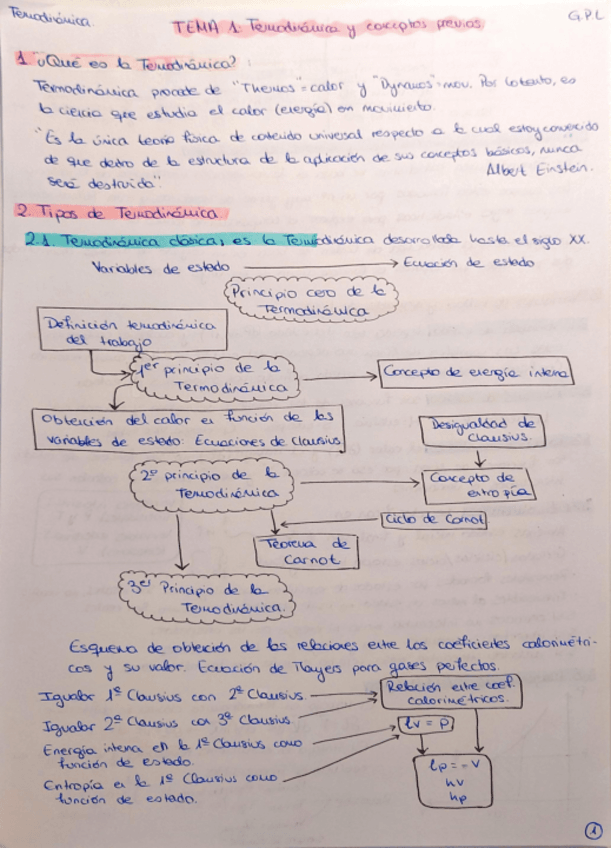 Termodinámica.
G.P.L
TEMA 1: Termodinámica y conceptos previos.
1. ¿Qué es la Termodinámica? :
Termodinámica procede de "Thermos" = calor y "Dynamos" = mov. Por lo tanto, es
la ciencia que estudia el calor (energía) en movimiento.
"Es la única teoría física de contenido universal respecto a la cual estoy convencido
de que dentro de la estructura de la aplicación de sus conceptos básicos, nunca
será destruida".
Albert Einstein.
2. Tipos de Termodinámica.
2.1. Termodinámica clásica, es la Termodinámica desarrollada hasta el siglo XX.
Variables de estado → Ecuación de estado
Principio cero de la
Termodinámica
Definición termodinámica
del trabajo
1er principio de la
Termodinámica
Concepto de energía interna
Obtención del calor en función de las
variables de estado: Ecuaciones de Clausius
Desigualdad de
Clausius.
2º principio de la
Termodinámica
Concepto de
entropía
Ciclo de Carnot
Teorema de
Carnot
3er Principio de la
Termodinámica.
Esquema de obtención de las relaciones entre los coeficientes calorimétri-
cos y su valor. Ecuación de Mayers para gases perfectos.
Igualar 1ª Clausius con 2ª Clausius.
Relación entre coef.
calorimétricos.
Igualar 2ª Clausius con 3ª Clausius.
lv = P
Energía interna en la 1ª Clausius como
función de estado.
lp = -V
hv
hp
Entropía en la 1ª Clausius como
función de estado.
1